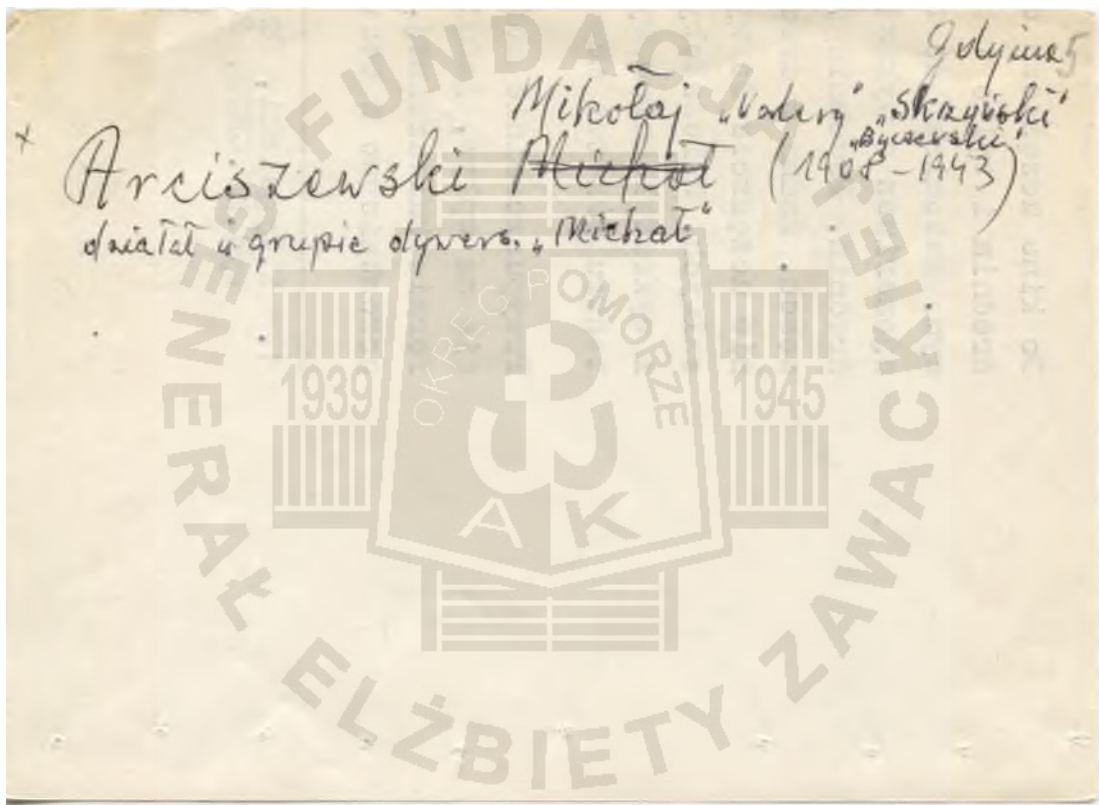 Gdynia 5
Mikołaj „Walery" „Skrzyński"
„Byczewski"
x Arciszewski Michał (1908-1943)
działał w grupie dywers. „Michał"
FUNDACJA GENERAŁ ELŻBIETY ZAWACKIEJ
OKRĘG POMORZE
1939 1945
AK